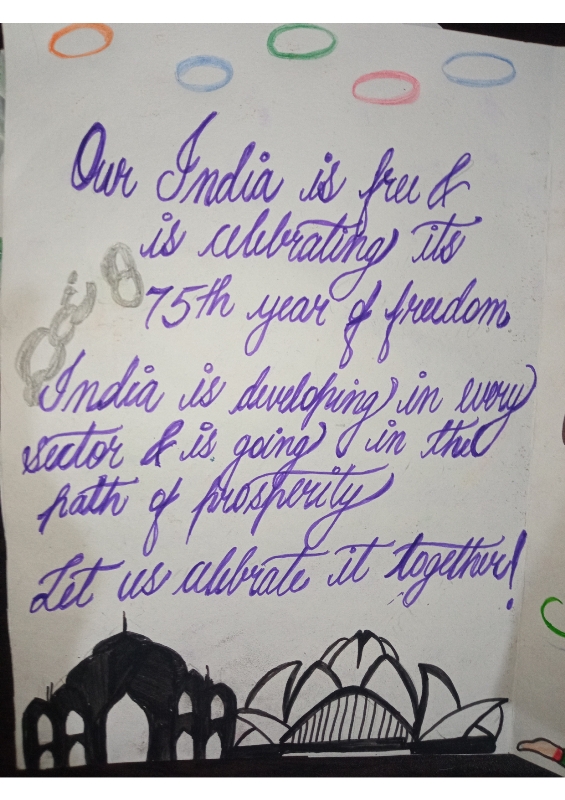 Our India is free &
is celebrating its
75th year of freedom.
India is developing in every
sector & is going in the
path of prosperity
Let us celebrate it together!